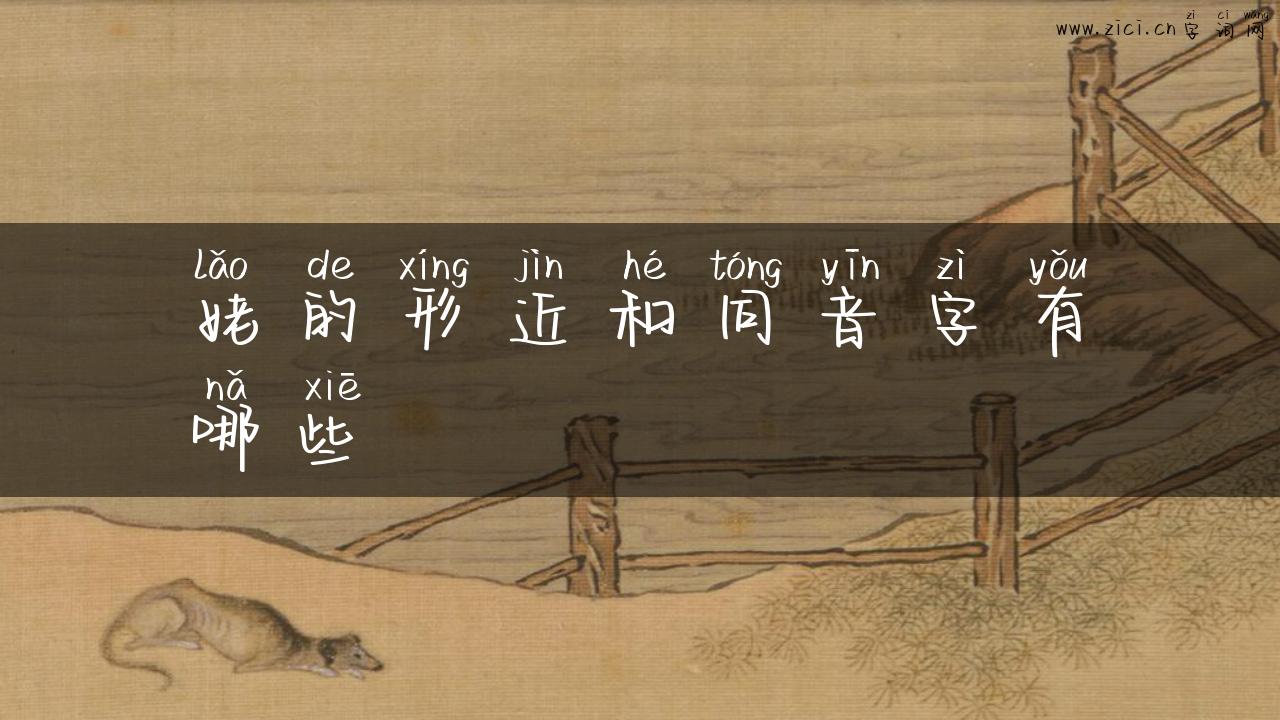 zì cí wǎng
www.zici.cn 字词网
lǎo de xíng jìn hé tóng yīn zì yǒu
姥的形近和同音字有
nǎ xiē
哪些